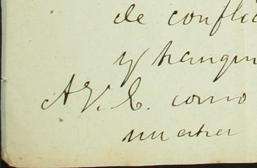 de conflic
y tranqui
A V. E. como
nuestra